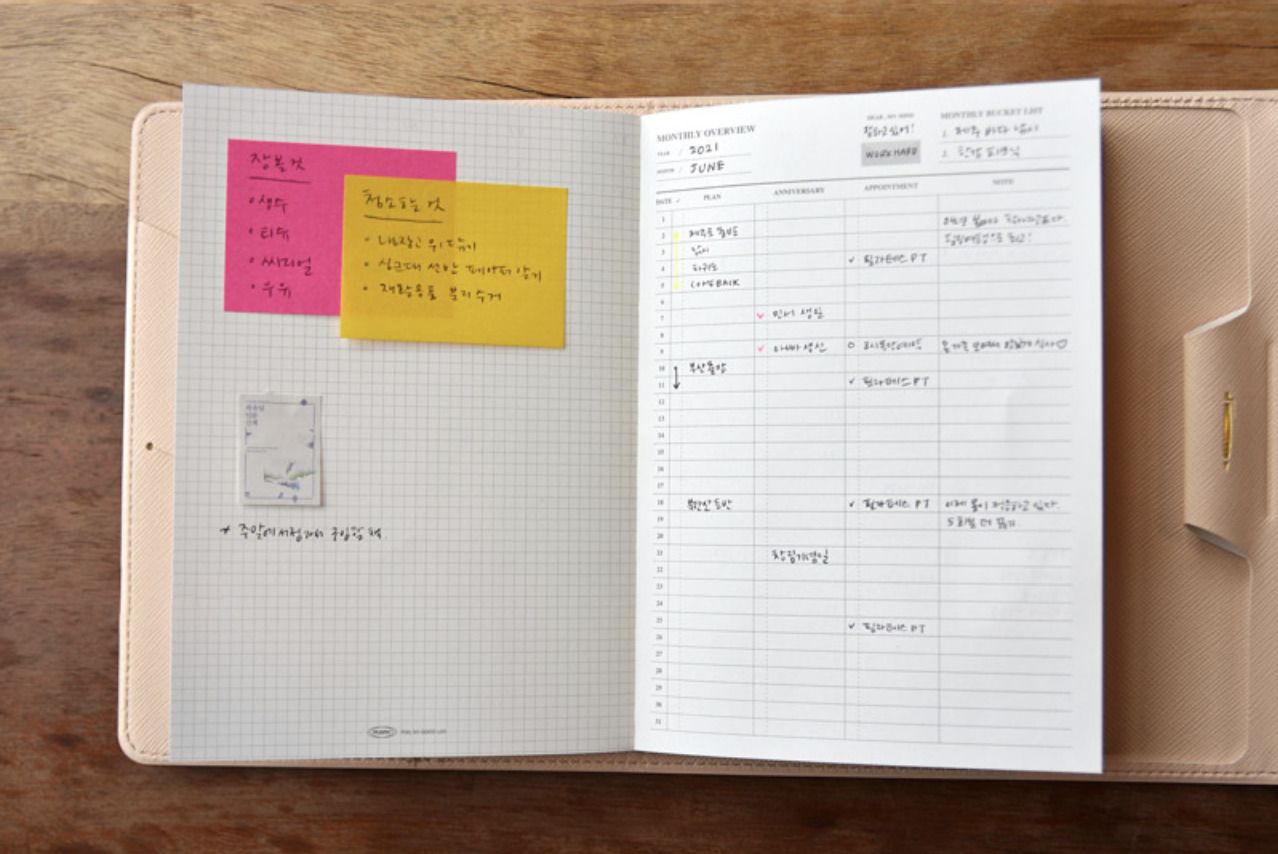 장볼것
• 생수
• 티슈
• 씨리얼
• 우유
청소하는 것
• 냉장고 위 닦기
• 재활용품 분리수거
* 주말에 서점가서 구입할 책
MONTHLY OVERVIEW
YEAR / 2021
MONTH / JUNE
DEAR. MY MIND
잘하고 있어!
WORK HARD
MONTHLY BUCKET LIST
1. 제주 바다 낚시
2. 한강 피크닉
DATE ✓ PLAN ANNIVERSARY APPOINTMENT NOTE
1
2 제주도
3 낚시
4 ✓ 필라테스 PT
5 COME BACK
6
7 ✓ 민서 생일
8
9 ✓ 아빠 생신
10 부산출장
11 ✓ 필라테스 PT
12
13
14
15
16
17
18 북한산 등반 ✓ 필라테스 PT 이제 몸이 적응하고 있다.
19 5회만 더
20
21 창립기념일
22
23
24
25 ✓ 필라테스 PT
26
27
28
29
30
31